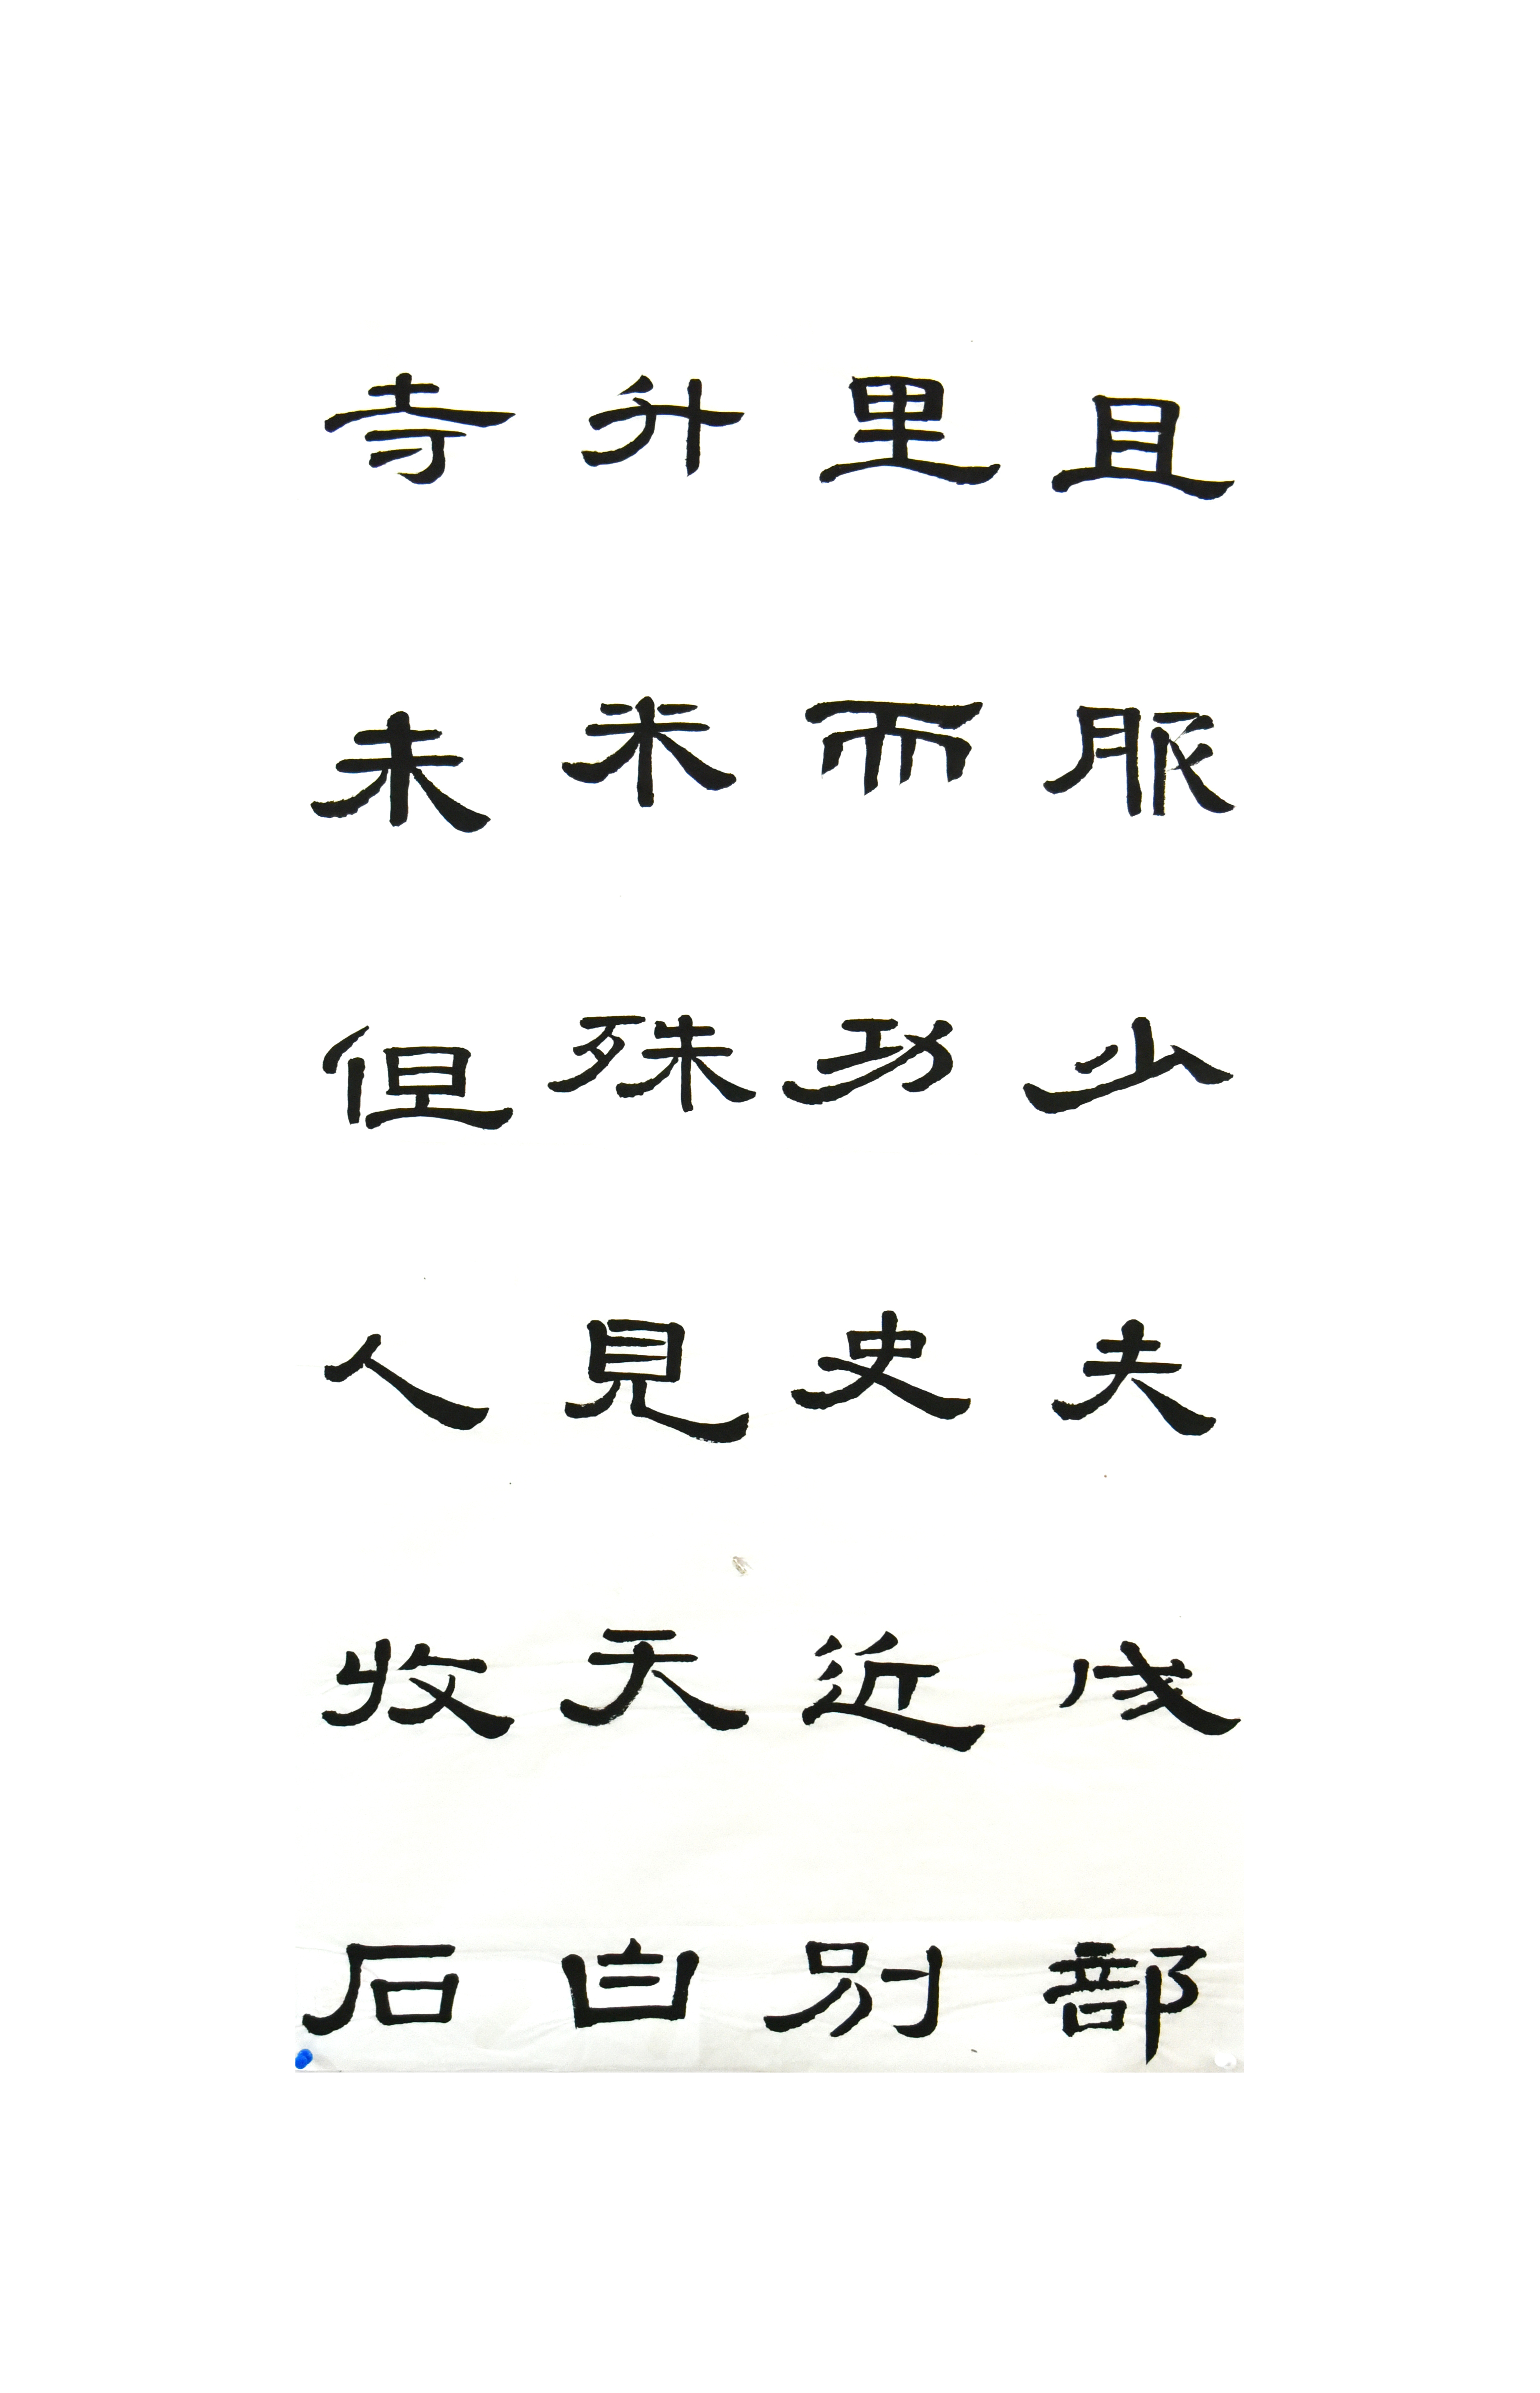 且服少夫部
里而功史近別
升米殊見天白
寺未但人收石